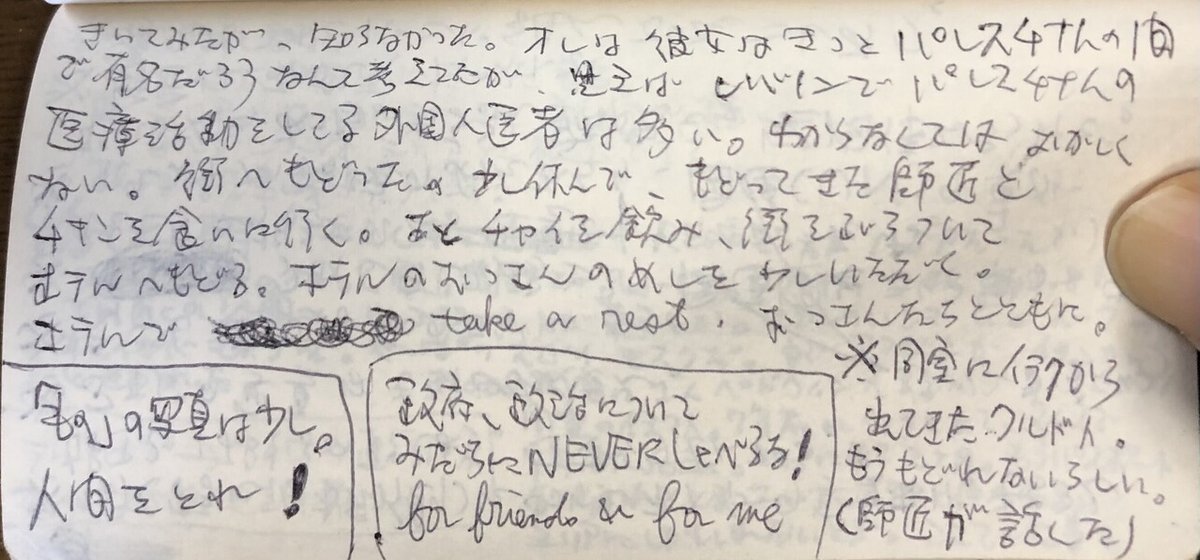 きいてみたが、知らなかった。オレは彼女はきっとパレスチナ人の間
で有名だろうなんて考えてたが、思えばレバノンでパレスチナ人の
医療活動をしてる外国人医者は多い。わからなくてはおかしく
ない。街へもどった。少し休んで、もどってきた師匠と
チキンを食いに行く。あとチャイを飲み、街をぶらついて
ホテルへもどる。ホテルのおっさんのめしを少しいただく。
ホテルで take a rest. おっさんたちとともに。
「もの」の写真は少し。
人間をとれ!
政府、政治について
みだらにNEVERしゃべるな!
for friends & for me
※同室にイラクから
出てきたクルド人。
もうもどれないらしい。
(師匠が話した)